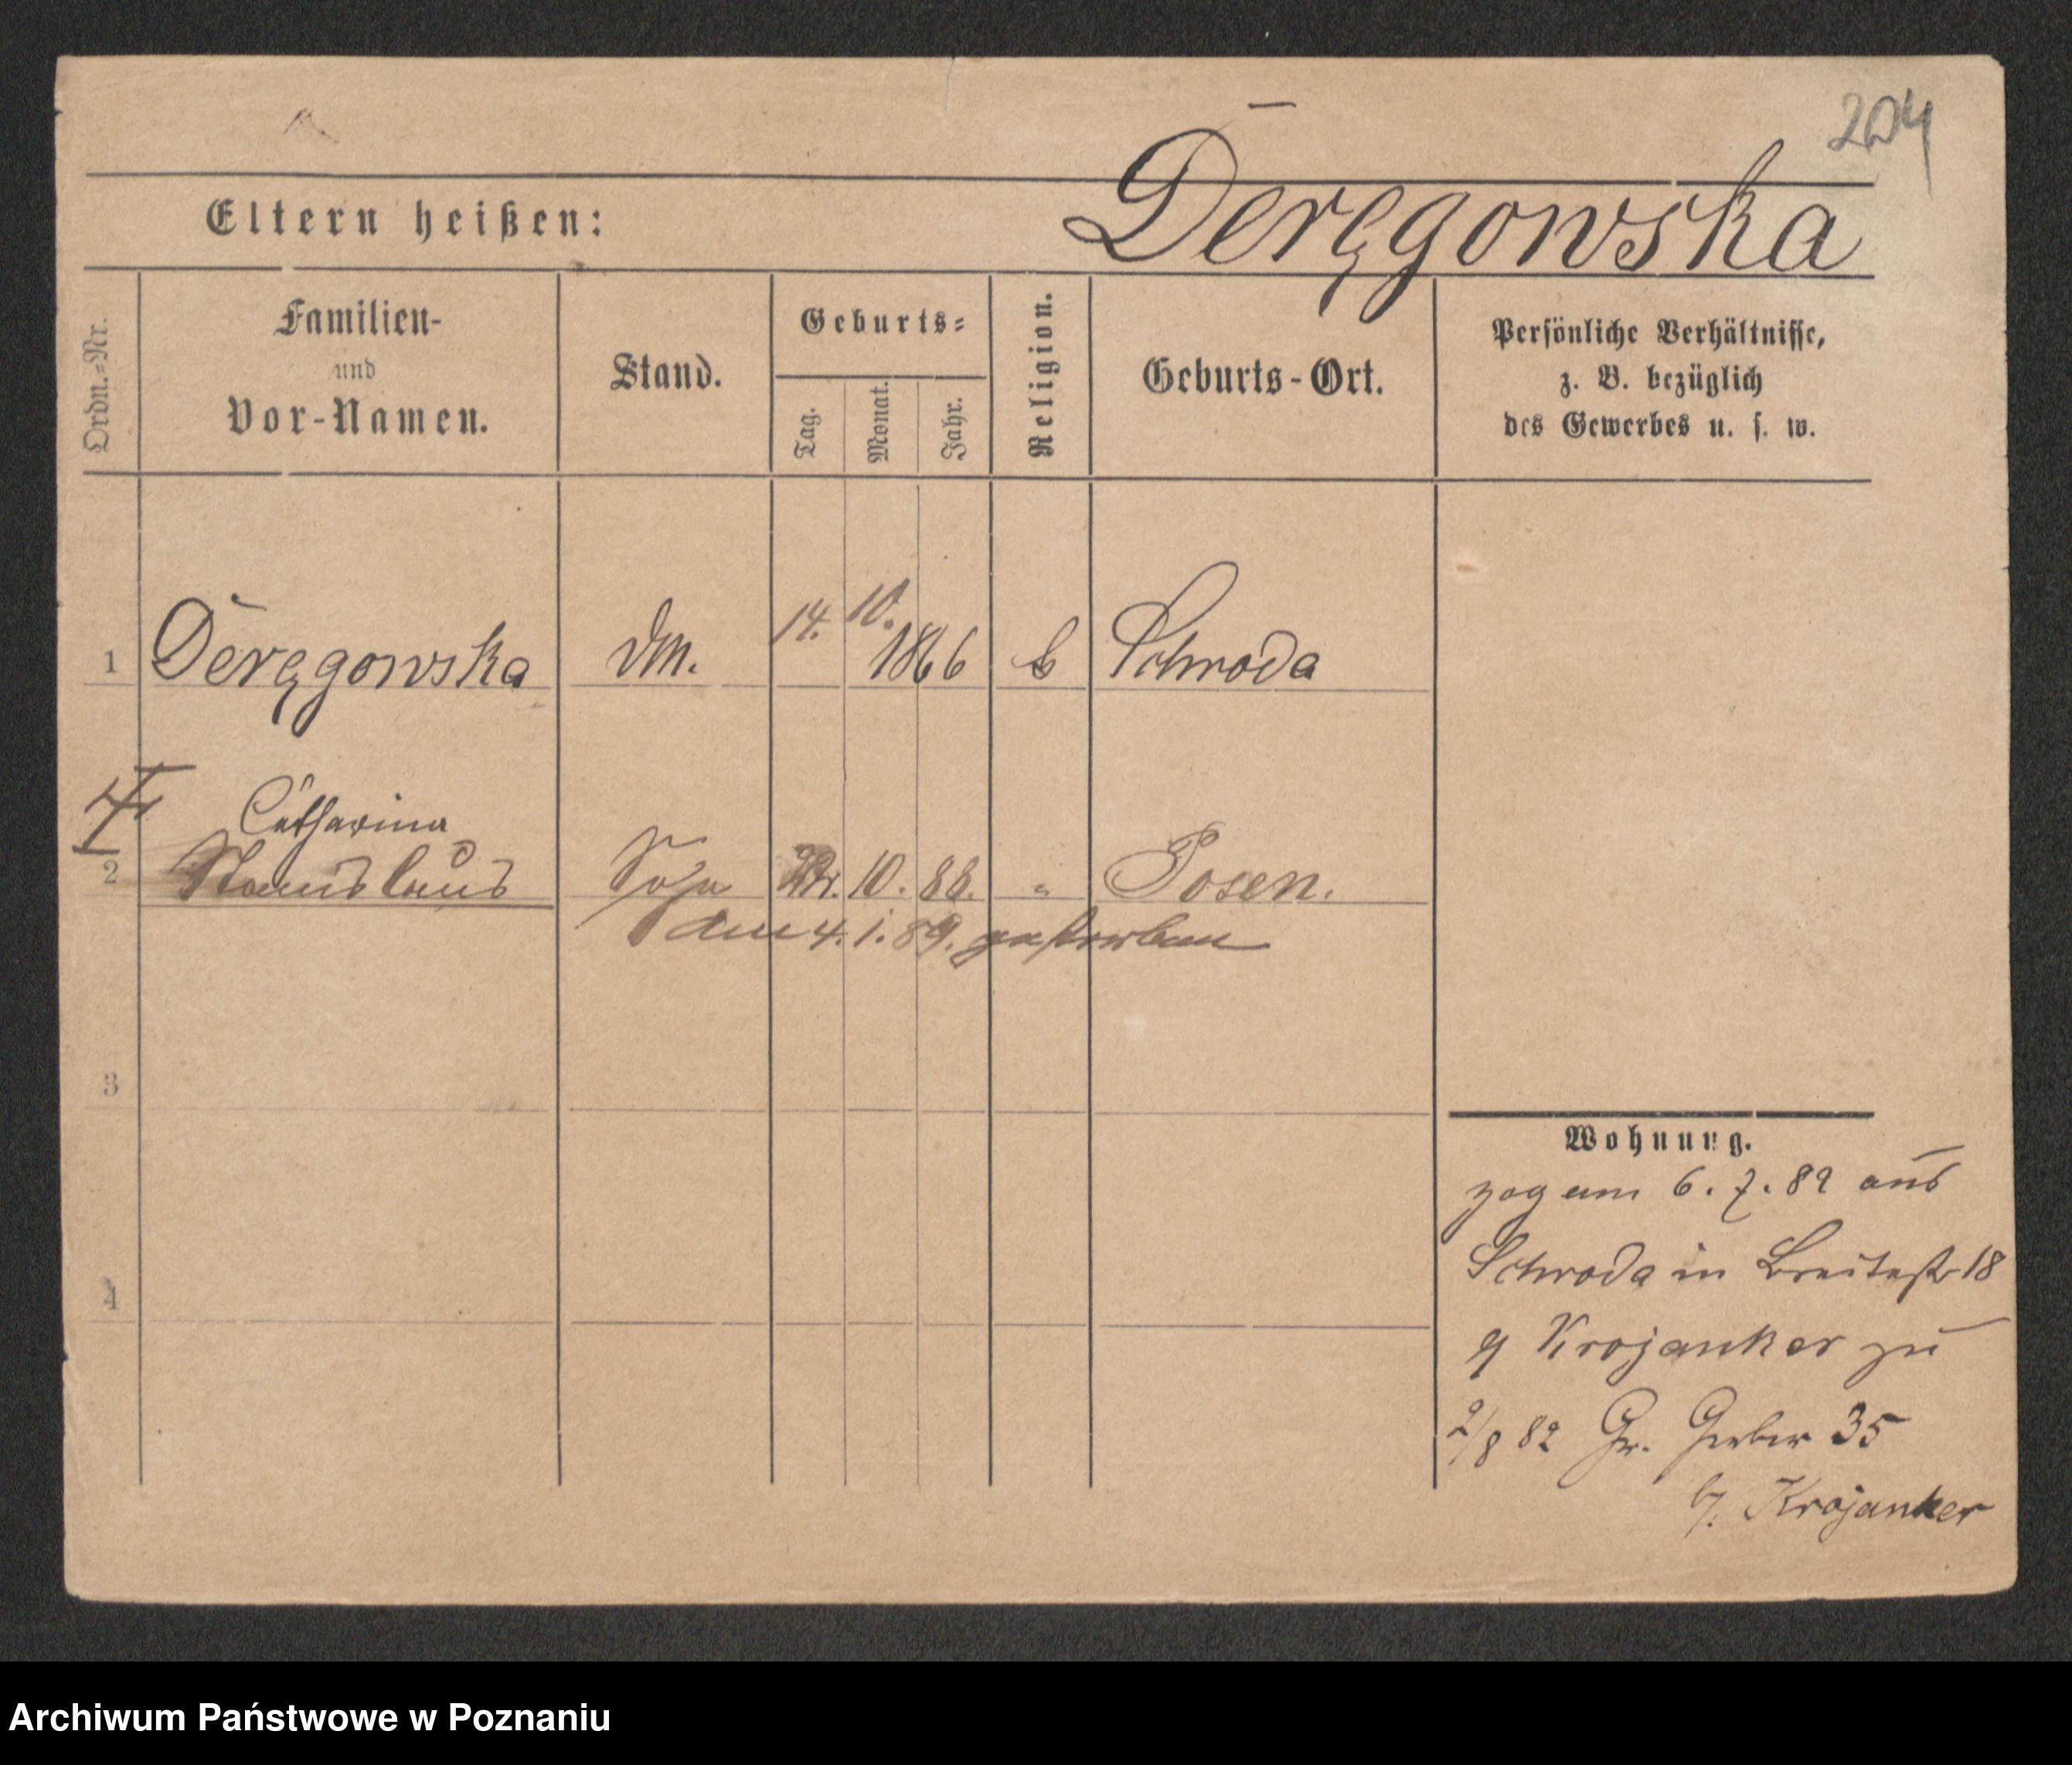 204
Deręgowska
Eltern heißen:
Ordn.-Nr.
Familien-
und
Vor-Namen.
Stand.
Geburts-
Tag.
Monat.
Jahr.
Religion.
Geburts-Ort.
Persönliche Verhältnisse,
z. B. bezüglich
des Gewerbes u. s. w.
1 Deręgowska 14. 10. 1866 Schroda
Catharina
2 Stanislaus Sohn 10. 88. " Posen.
am 4. 1. 89. gestorben
3
4
Wohnung.
zog am 6. 7. 82 aus
Schroda in Breitestr 18
Krojanker zu
2/8 82 Gr. Gerber 35
b/. Krojanker
Archiwum Państwowe w Poznaniu